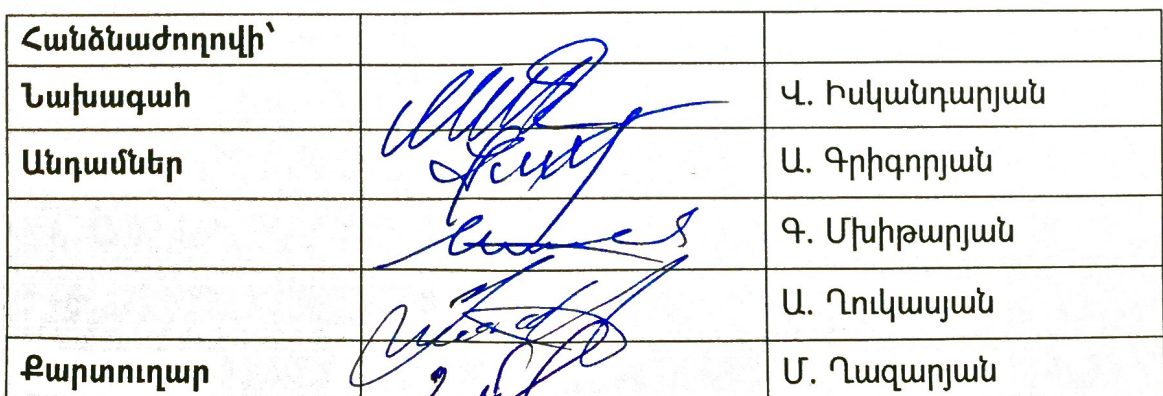 Հանձնաժողովի՝
Նախագահ Վ. Իսկանդարյան
Անդամներ Ա. Գրիգորյան
Գ. Մխիթարյան
Ա. Ղուկասյան
Քարտուղար Մ. Ղազարյան